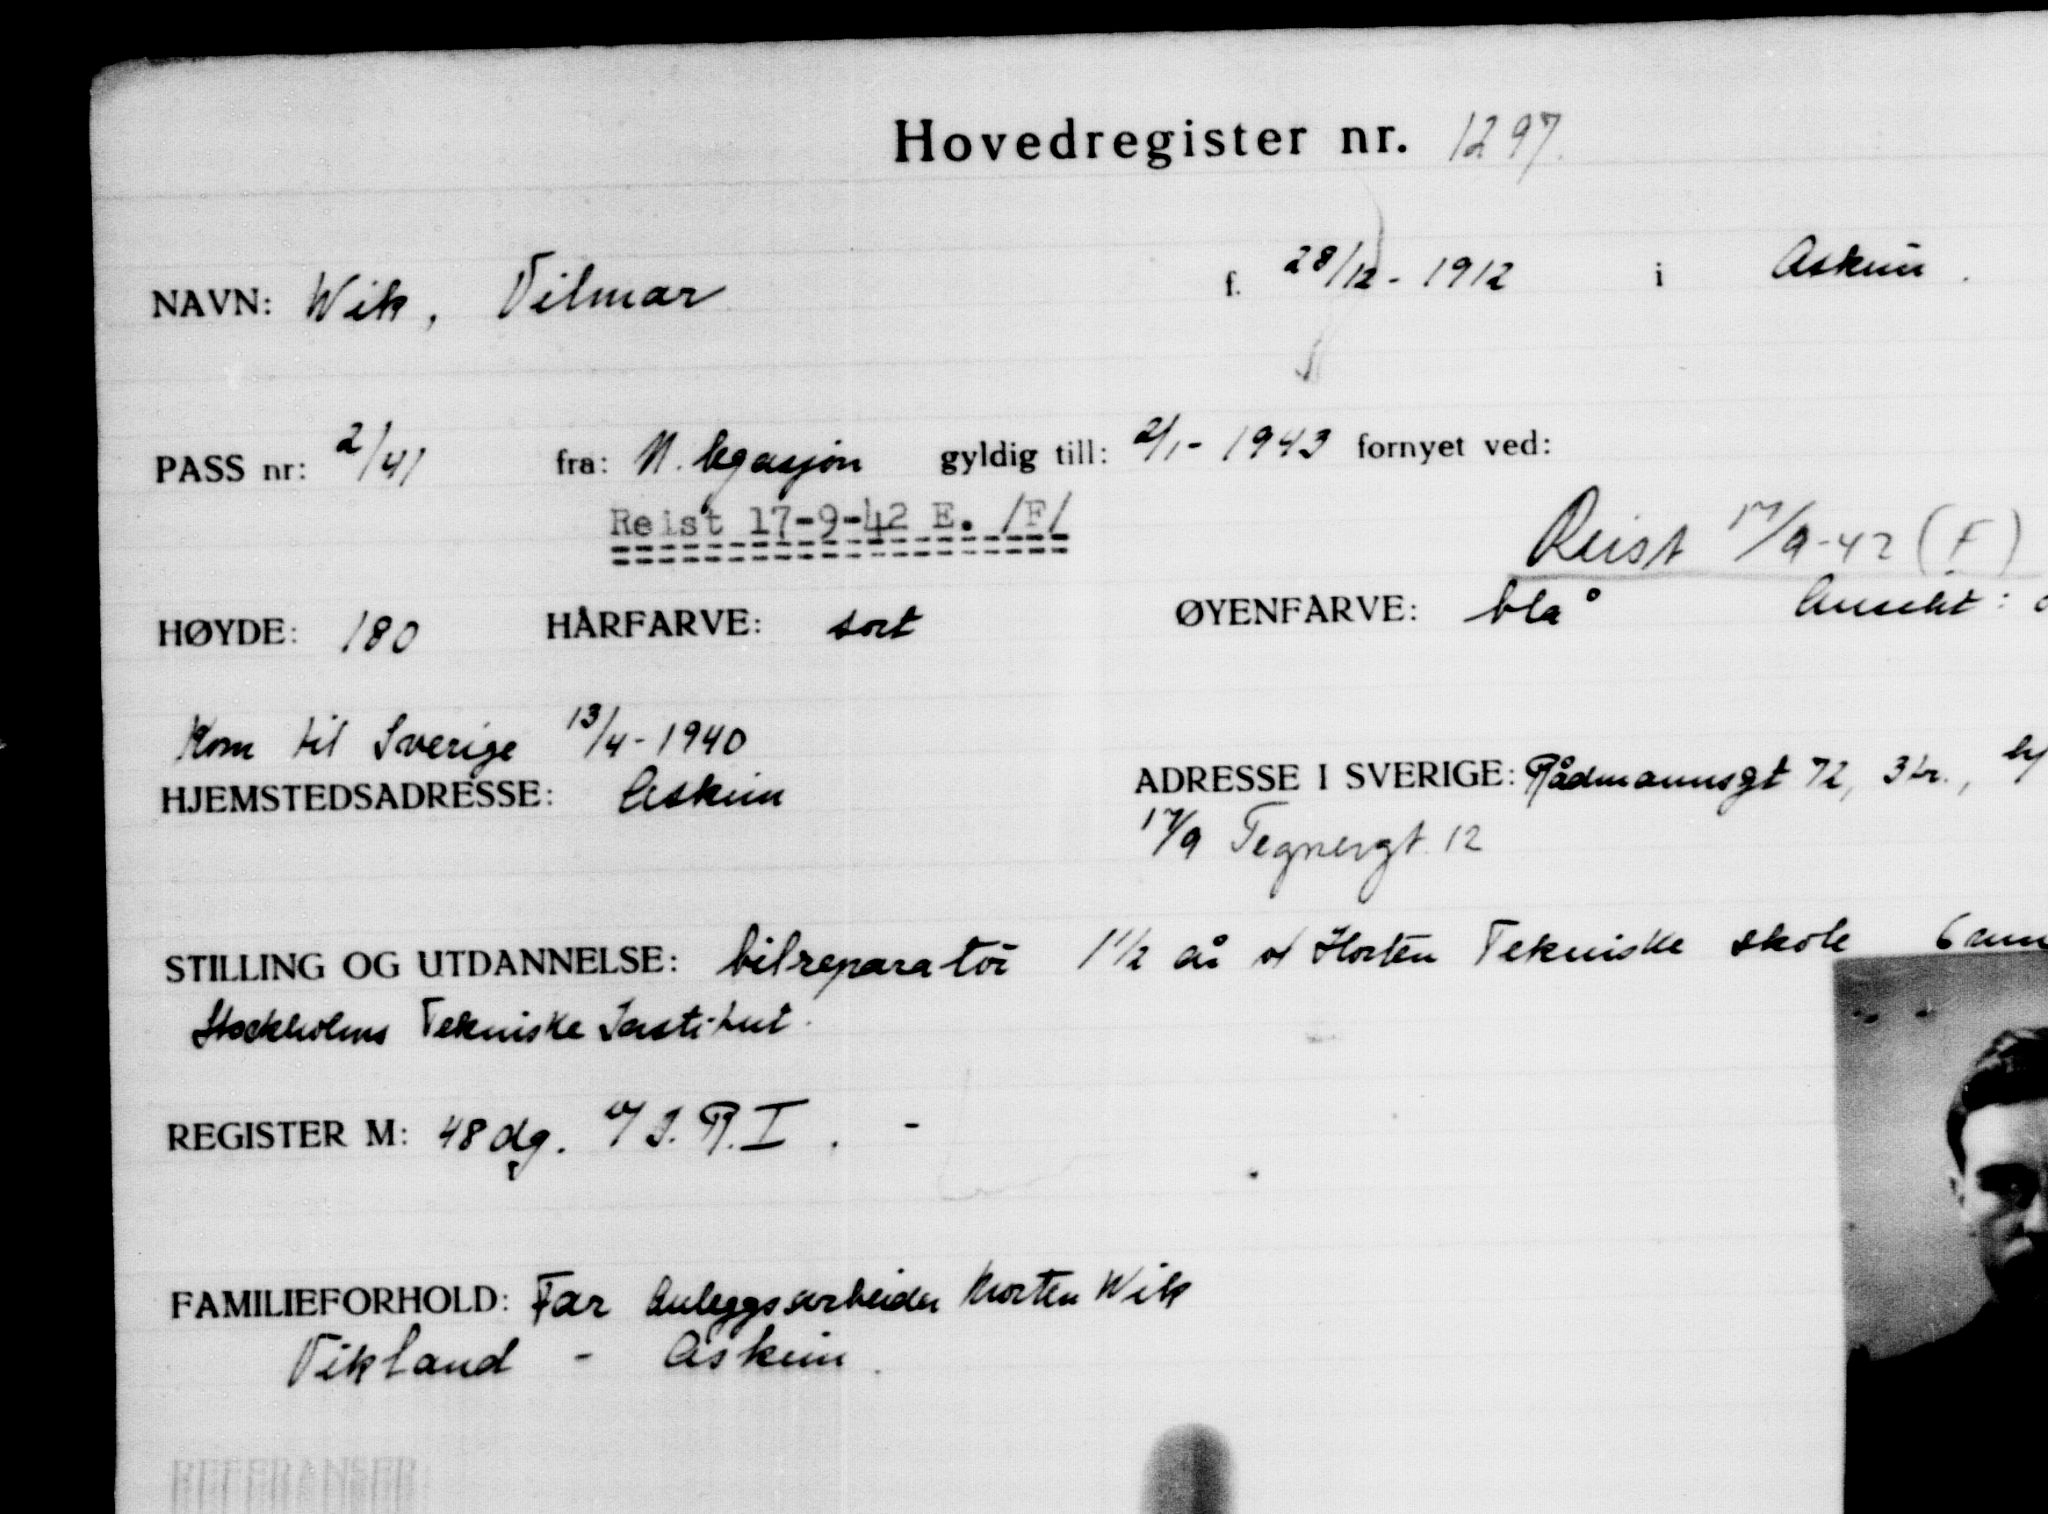 Hovedregister nr. 1297.
NAVN: Wik, Vilmar f. 28/12 - 1912 i Askim.
PASS nr: 2/41 fra: N. legasjon gyldig till: 2/1 - 1943 fornyet ved:
Reist 17-9-42 E. /F/
Reist 17/9-42 (F)
HØYDE: 180 HÅRFARVE: sort ØYENFARVE: blå Ansikt:
Kom til Sverige 13/4 - 1940
HJEMSTEDSADRESSE: Askim ADRESSE I SVERIGE: Rådmannsgt 72, 3 tr.,
17/9 Tegnergt. 12
STILLING OG UTDANNELSE: bilreparatør 1 1/2 år v/ Horten Tekniske skole 6
Stockholms Tekniske Institut.
REGISTER M: 48 dg. v/ J.R.I. -
FAMILIEFORHOLD: Far Anleggsarbeider Morten Wik
Vikland - Askim.
REFERANSER